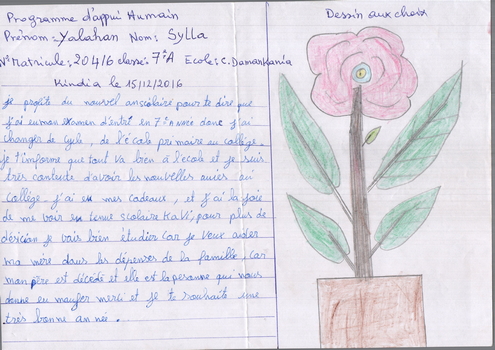 Programme d'appui Humain
Dessin aux choix
Prénom: Yalahan Nom: Sylla
N° Matricule: 20416 classe: 7ᵉA Ecole: C. Damankania
Kindia le 15/12/2016
je profite du nouvel anscolaire pour te dire que
j'ai eu mon examen d'entré en 7ᵉ année donc j'ai
changer de cycle, de l'école primaire au collège.
je t'informe que tout va bien à l'école et je suis
très contente d'avoir les nouvelles amies au
collège j'ai eu mes cadeaux, et j'ai la joie
de me voir en tenue scolaire KaKi, pour plus de
décision je vais bien étudier car je veux aider
ma mère dans les dépenses de la famille, car
mon père est décédé et elle est la personne qui nous
donne eu manger merci et je te souhaite une
très bonne année.